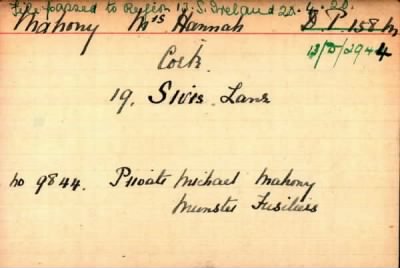 File passed to Region 12. S. Ireland 20.4.20.
Mahony Mrs Hannah D.P. 158/M
13/D/2944
Cork
19. Sivis Lane
No 9844. Private Michael Mahony
Munster Fusiliers